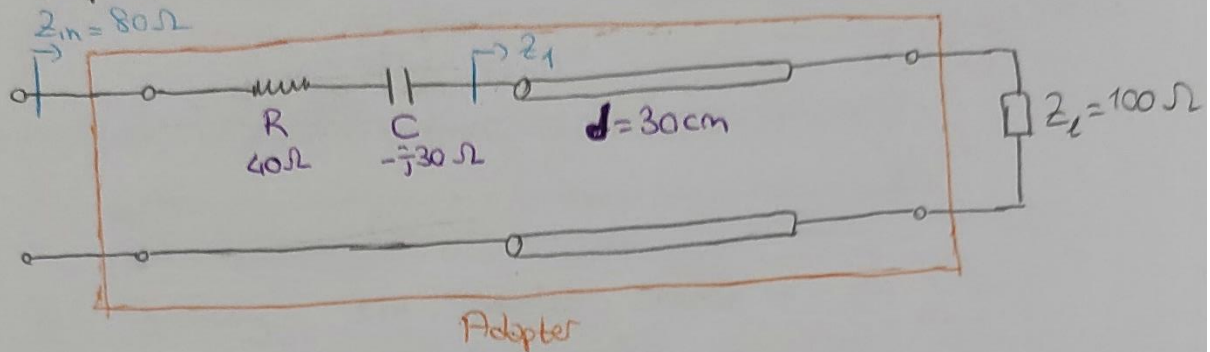 Zin = 80Ω
Z1
R
40Ω
C
-j30 Ω
d=30cm
Zl=100Ω
Adapter